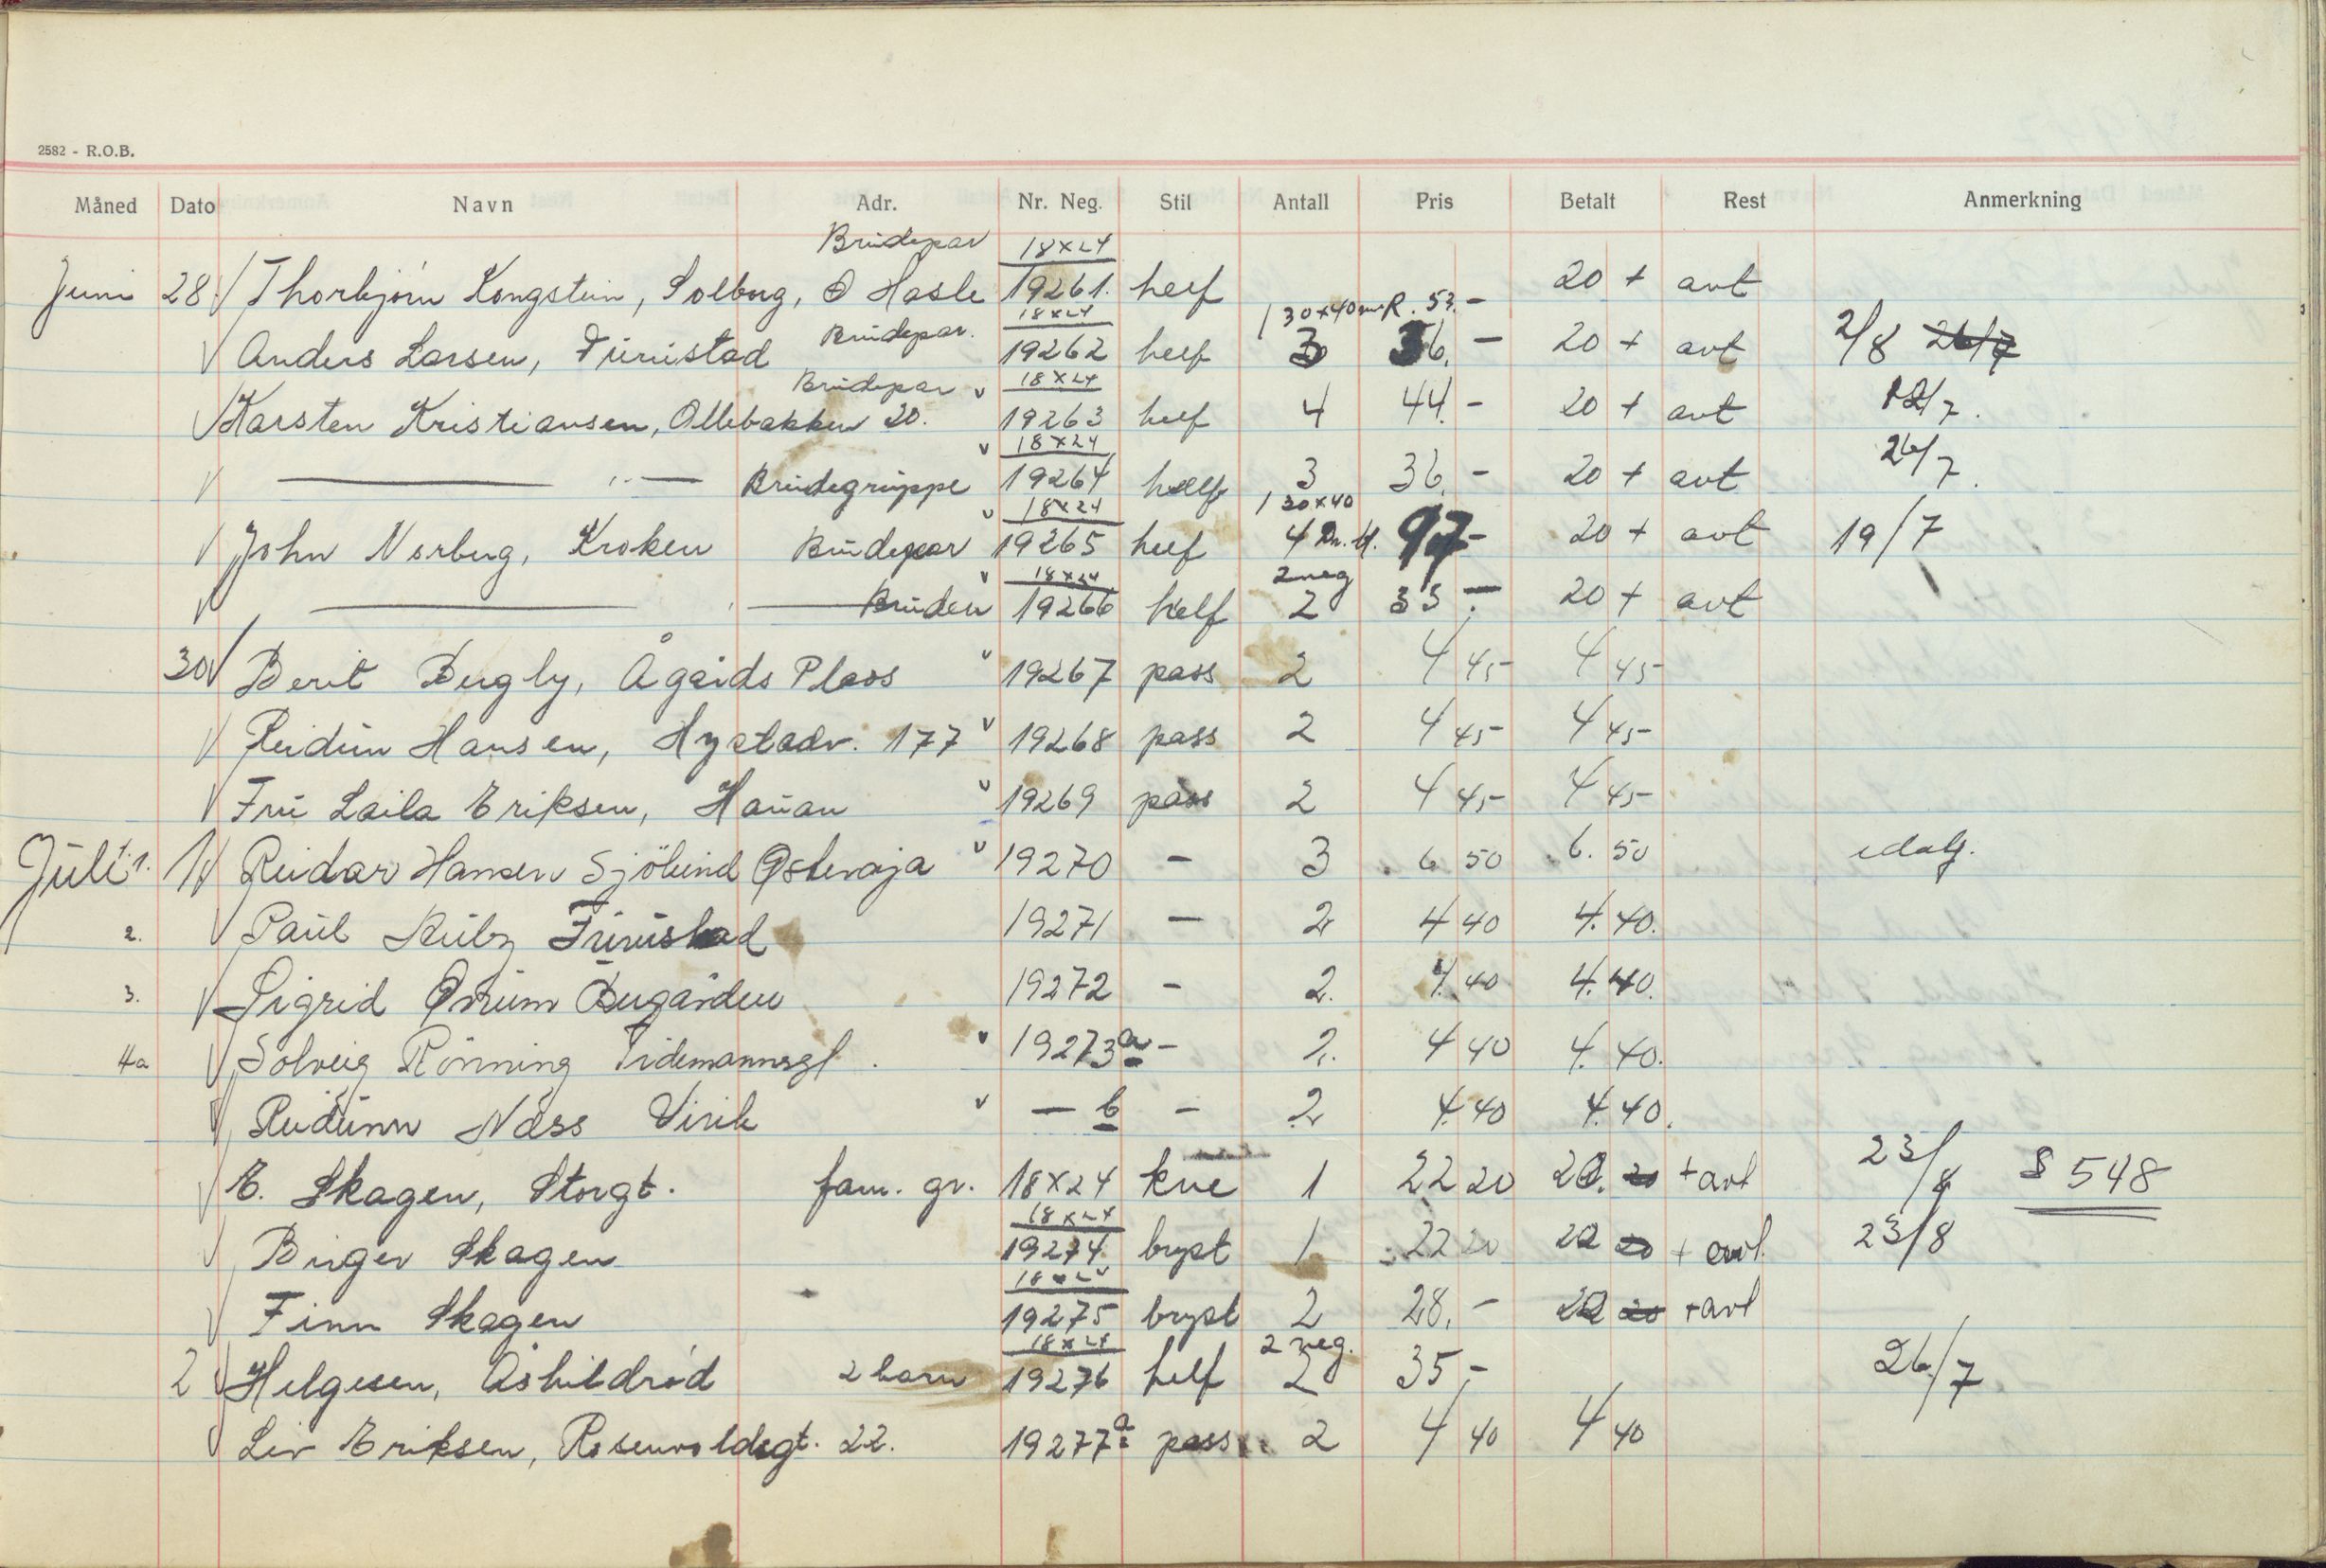 2582 - R.O.B.
Måned Dato Navn Adr. Nr. Neg. Stil Antall Pris Betalt Rest Anmerkning
Brudepar 18x24
Juni 28 Thorbjørn Kongstein, Solberg, Ø Hasle 19261. helf 20 + avt
Brudepar. 18x24 1 30x40 R. 53.-
Anders Larsen, Furustad 19262 helf 3 36.- 20 + avt 2/8 26/7
Brudepar 18x24
Karsten Kristiansen, Ollebakken 20. 19263 helf 4 44.- 20 + avt 12/7.
18x24
— " — Brudegruppe 19264 helf 3 36.- 20 + avt 26/7.
18x24 1 30x40
John Norberg, Kroken Brudepar 19265 helf 4 97- 20 + avt 19/7
18x24 2 neg
— " — Bruden 19266 helf 2 35.- 20 + avt
30 Berit Bugly, Ågårds Plass 19267 pass 2 4 45- 4 45-
Reidun Hansen, Nystadv. 177 19268 pass 2 4 45- 4 45-
Fru Laila Eriksen, Hauan 19269 pass 2 4 45- 4 45-
Juli 1. 1 Reidar Hansen Sjölund Østerøja 19270 - 3 6 50 6. 50
2. Paul Furustad 19271 - 2 4 40 4. 40.
3. Sigrid Bugården 19272 - 2. 4. 40 4. 40.
4a Solveig Rönning Tidemannsgt. 19273a - 2. 4 40 4. 40.
Reidunn Næss Virik — b - 2 4.40 4.40.
E. Skagen, Storgt. fam. gr. 18x24 kne 1 22 20 20. 20 + avt 23/8 S 548
18x24
Birger Skagen 19274 bryst 1 22 20 20 20 + avt. 23/8
18x24
Finn Skagen 19275 bryst 2 28.- 20 20 + avt
18x24 2 neg.
2 Helgesen, Åshildrød 2 barn 19276 helf 2 35,- 26/7
Liv Eriksen, Rosenvoldsgt. 22. 19277a pass 2 4 40 4 40